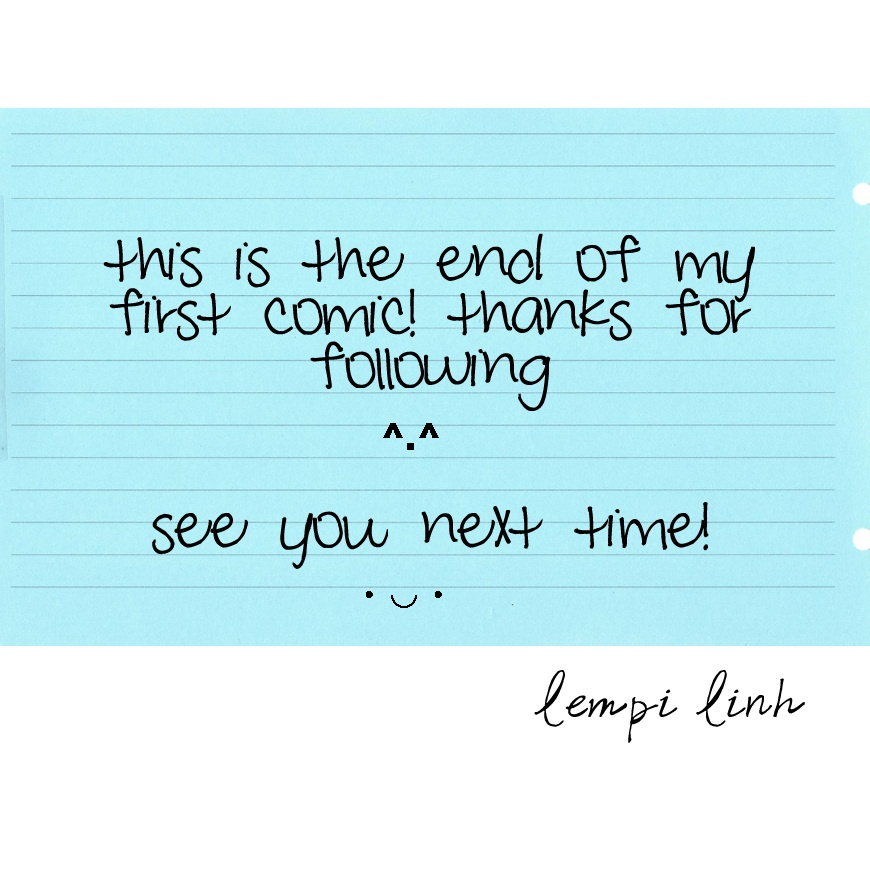 this is the end of my
first comic! thanks for
following
^.^
see you next time!
lempi linh